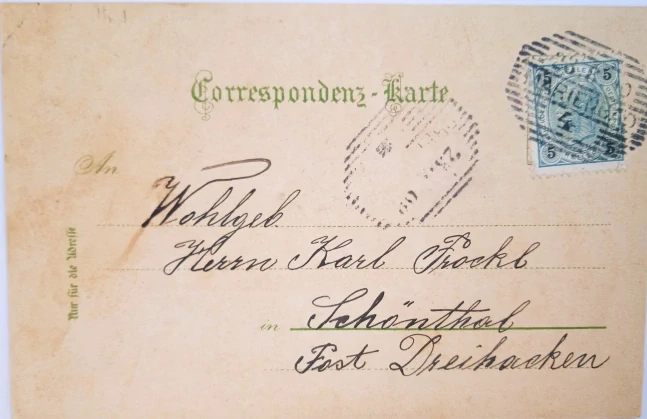 Correspondenz-Karte.
5 5
5 5
4
An
Wohlgeb.
Herrn Karl Prockl
in Schönthal
Post Dreihacken
Nur für die Adresse